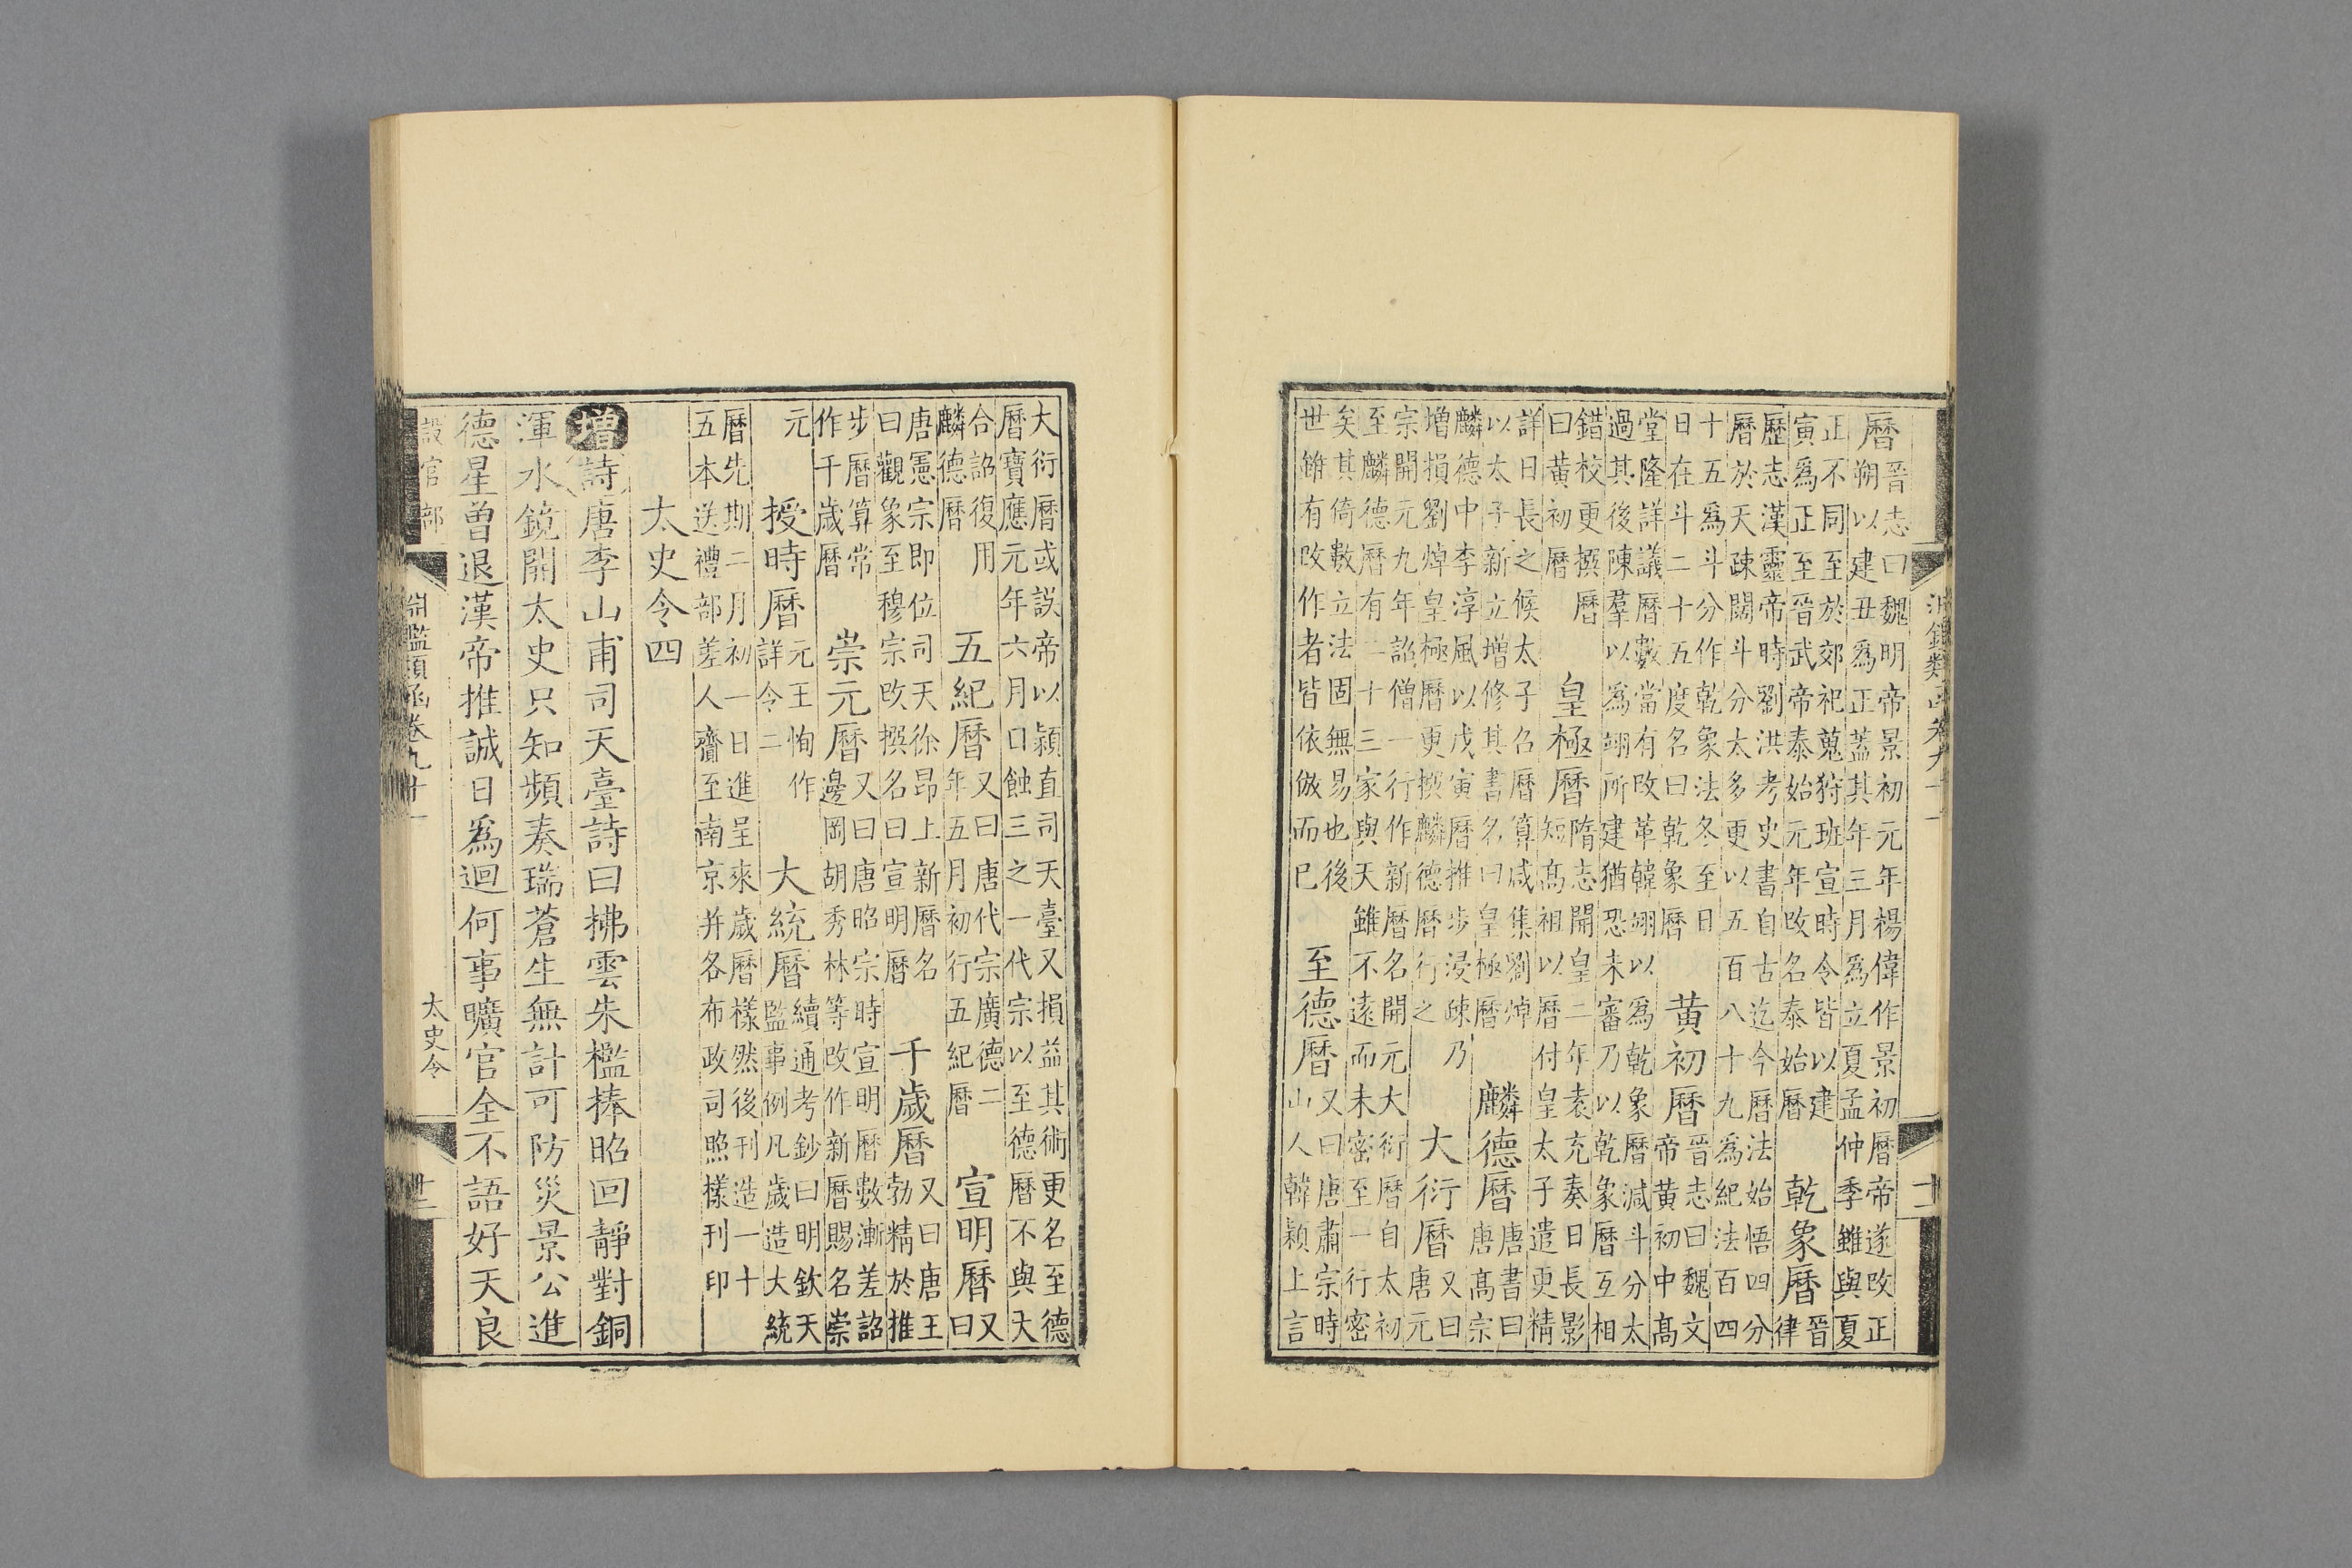 淵鑑類函卷九十一
十二
曆晉志曰魏明帝景初元年楊偉作景初曆帝遂改正
朔以建丑爲正蓋其年三月爲立夏孟仲季雖與夏
正不同至於郊祀蒐狩班宣時令皆以建
寅爲正至晉武帝泰始元年改名泰始曆
乾象曆晉
律
歷志漢靈帝時劉洪考史書自古迄今曆法始悟四分
曆於天疎闊斗分太多更以五百八十九爲紀法百四
十五爲斗分作乾象法冬至日
日在斗二十五度名曰乾象曆
黃初曆晉志曰魏文
帝黃初中高
堂隆詳議曆數當有改革韓翊以爲乾象曆減斗分太
過其後陳羣以爲翊所建猶恐未審乃以乾象曆互相
錯校更撰曆
曰黃初曆
皇極曆隋志開皇二年袁充奏日長影
短高祖以曆付皇太子遣更精
詳日長之候太子召曆算咸集劉焯
以太子新立增修其書名曰皇極曆
麟德曆唐書曰
唐高宗
麟德中李淳風以戊寅曆推步浸疎乃
增損劉焯皇極曆更撰麟德曆行之
大衍曆又曰
唐元
宗開元九年詔僧一行作新曆名開元大衍曆自太初
至麟德曆有二十三家與天雖不遠而未密至一行密
矣其倚數立法固無易也後
世雖有改作者皆依倣而已
至德曆又曰唐肅宗時
山人韓穎上言
大衍曆或誤帝以穎直司天臺又損益其術更名至德
曆寶應元年六月日蝕三之一代宗以至德曆不與大
合詔復用
麟德曆
五紀曆又曰唐代宗廣德二
年五月初行五紀曆
宣明曆又
曰
唐憲宗即位司天徐昂上新曆名
曰觀象至穆宗改撰名曰宣明曆
千歲曆又曰唐王
勃精於推
步曆算常
作千歲曆
崇元曆又曰唐昭宗時宣明曆數漸差詔
邊岡胡秀林等改作新曆賜名崇
元
授時曆元王恂作
詳令二
大統曆續通考鈔曰明欽天
監事例凡歲造大統
曆先期二月初一日進呈來歲曆樣然後刊造一十
五本送禮部差人齎至南京并各布政司照樣刊印
太史令四
增詩唐李山甫司天臺詩曰拂雲朱檻捧昭回靜對銅
渾水鏡開太史只知頻奏瑞蒼生無計可防災景公進
德星曾退漢帝推誠日爲迴何事曠官全不語好天良
設官部
淵鑑類函卷九十一
太史令
十二